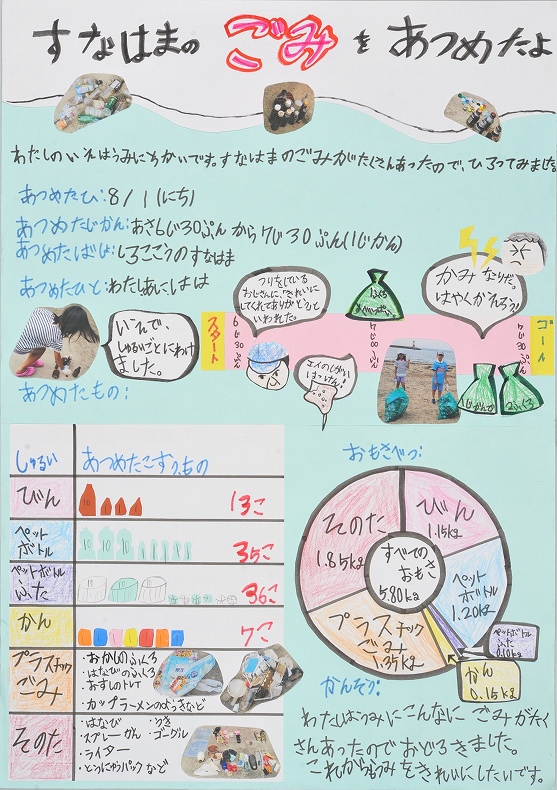 すなはまの ごみ を あつめたよ
わたしのいえはうみにちかいです。すなはまのごみがたくさんあったので、ひろってみました。
あつめたひ:8/1(にち)
あつめたじかん:あさ6じ30ぷんから7じ30ぷん(1じかん)
あつめたばしょ:しろここうのすなはま
あつめたひと:わたし、あに、はは
いえで、
しゅるいごとにわけ
ました。
スタート
6じ30ぷん
つりをしている
おじさんに、「きれいに
してくれてありがとう」と
いわれた。
エイのしがい
はっけん!
1ふくろ
7じ00ぷん
かみなりだ。
はやくかえろう!
7じ30ぷん
ゴール
1じかんで
2ふくろ
あつめたもの:
しゅるい
あつめたこすう、もの
びん
13こ
ペット
ボトル
10 10
35こ
ペットボトル
ふた
10 10 10
36こ
かん
7こ
プラスチック
ごみ
・おかしのふくろ
・はなびのふくろ
・おすしのトレイ
・カップラーメンのようきなど
そのた
・はなび ・うき
・スプレーかん ・ゴーグル
・ライター
・とうにゅうパック など
おもさべつ:
すべての
おもさ
5.80kg
びん
1.15kg
ペット
ボトル
1.20kg
ペットボトル
ふた
0.10kg
かん
0.15kg
プラスチック
ごみ
1.35kg
そのた
1.85kg
かんそう:
わたしはうみにこんなにごみがたく
さんあったのでおどろきました。
これからもうみをきれいにしたいです。